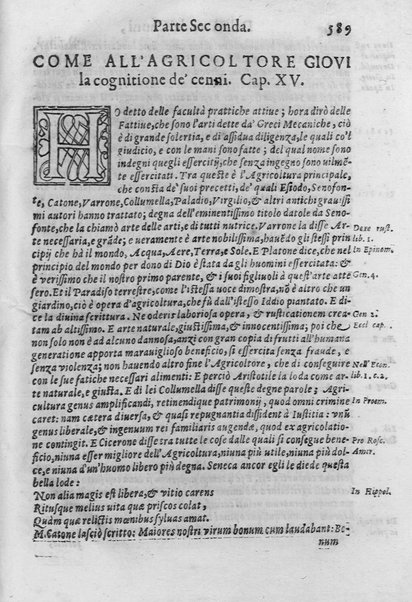 Parte Seconda. 589
COME ALL'AGRICOLTORE GIOVI
la cognitione de' cenni. Cap. XV.
HO detto delle facultà prattiche attiue; hora dirò delle
Fattiue, che sono l'arti dette da' Greci Mecaniche, ciò
è di grande solertia, e di assidua diligenza, le quali co'l
giudicio, e con le mani sono fatte; del qual nome sono
indegni quegli essercitij, che senza ingegno sono uilmẽ-
te essercitati. Tra queste è l'Agricoltura principale,
che consta de' suoi precetti, de' quali Esiodo, Senofon-
te, Catone, Varrone, Collumella, Paladio, Virgilio, & altri antichi grauissi
mi autori hanno trattato; degna dell'eminentissimo titolo datole da Seno-
fonte, che la chiamò arte delle arti, e di tutti nutrice. Varrone la disse Ar-
te necessaria, e grãde; e ueramente è arte nobilissima, hauẽdo gli stessi prin
cipij che hà il mondo, Acqua, Aere, Terra, e Sole. E Platone dice, che nel
principio del mondo per dono di Dio è stata da gli huomini essercitata; &
è verissimo che il nostro primo parente, & i suoi figliuoli à quest'arte atte
sero. Et il Paradiso terrestre, come l'istessa uoce dimostra, nõ è altro che un
giardino, ciò è opera d'agricoltura, che fù dall'istesso Iddio piantato. E di-
ce la diuina scrittura. Ne oderis laboriosa opera, & rusticationem crea-
tam ab altissimo. E arte naturale, giustissima, & innocentissima; poi che
non solo non è ad alcuno dannosa, anzi con gran copia di frutti all'humana
generatione apporta marauiglioso beneficio, si essercita senza fraude, e
senza violenza; non hauendo altro fine l'Agricoltore, che di conseguire
con le sue fatiche necessari alimenti: E perciò Aristotile la loda come ar-
te naturale, e giusta. E di lei Collumella disse queste degne parole; Agri-
cultura genus amplificandi, retinendique patrimonij, quod omni crimine
caret: nam cætera diuersa, & quasi repugnantia dissident à Iustitia: vnũ
genus liberale, & ingenuum rei familiaris augendæ, quod ex agricolatio-
ne contingit. E Cicerone disse tra tutte le cose dalle quali si consegue bene-
ficio, niuna esser migliore dell'Agricoltura, niuna più utile, niuna più dol-
ce, e niuna d'un'huomo libero più degna. Seneca ancor egli le diede questa
bella lode:
Non alia magis est libera, & vitio carens
Ritusque melius uita quæ priscos colat,
Quàm quæ relictis mœnibus syluas amat.
M. Catone lasciò scritto: Maiores nostri virum bonum cum laudabant: Bo-
num
De re rust.
lib. 1.
In Epinom.
Gen. 4.
Gen. 2.
Eccl cap.
Nell'Econ.
lib. 1. c. 2.
In Proem.
Pro Rosc.
Amer.
In Hippol.